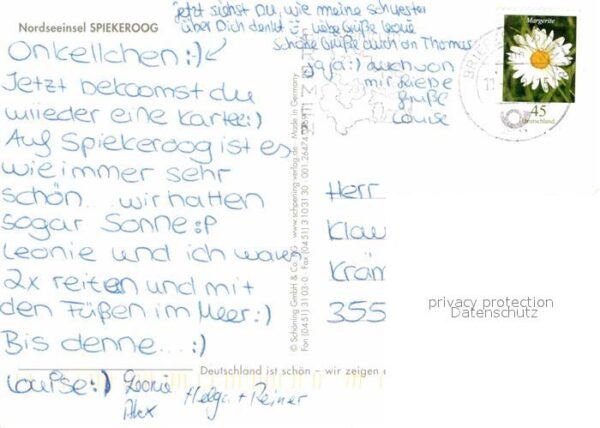 Nordseeinsel SPIEKEROOG
Onkellchen :)
Jetzt bekoomst du
wiieder eine Karte :)
Auf Spiekeroog ist es
wie immer sehr
schön... wir hatten
sogar Sonne :P
Leonie und ich waren
2x reiten und mit
den Füßen im Meer :)
Bis denne... :)
Louise :) Leonie
Alex Helga + Reiner
jetzt siehst Du, wie meine Schwester
über Dich denkt :) Liebe Grüße Leonie
Schöne Grüße auch an Thomas
jaja :) auch von
mir liebe
Grüße
Louise
© Schöning GmbH & Co. KG · www.schoening-verlag.de · Made in Germany
Fon (04 51) 3 10 3-0 · Fax (04 51) 3 10 31 30
Margerite
45
Deutschland
Herr
Klau
Kräm
355
privacy protection
Datenschutz
Deutschland ist schön – wir zeigen